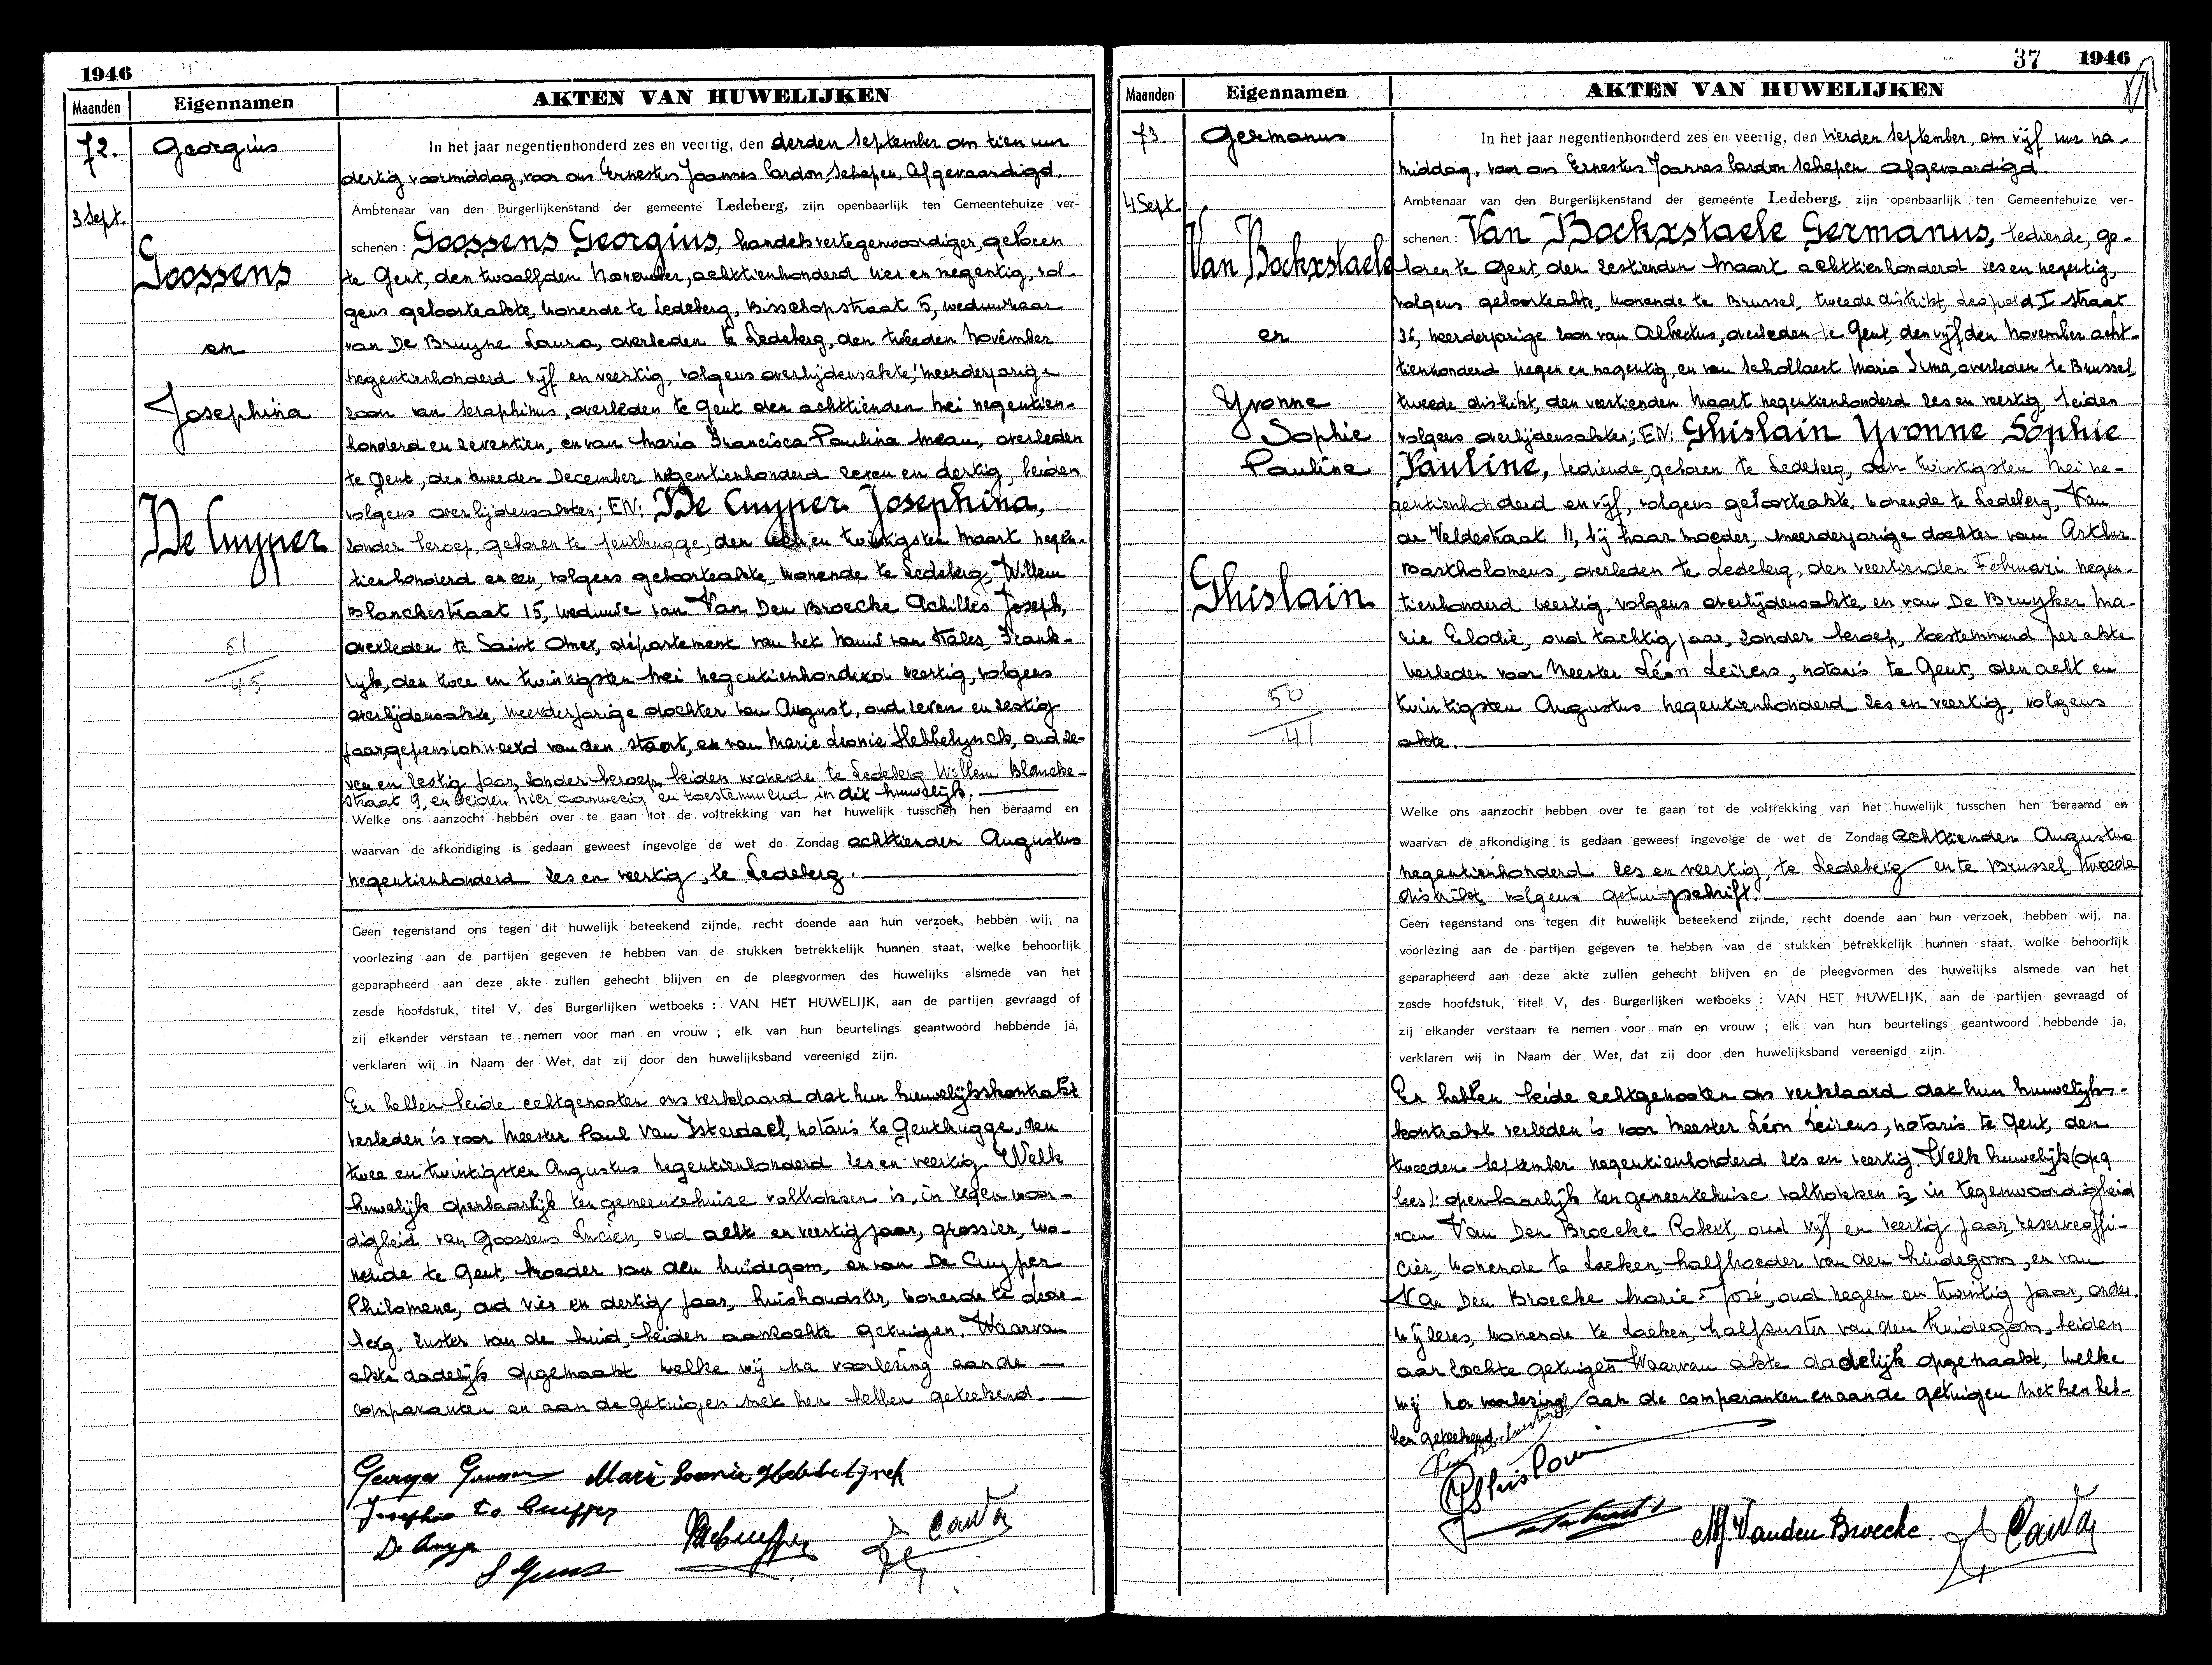 1946
Maanden Eigennamen AKTEN VAN HUWELIJKEN
72. Georgius
3 Sept.
Goossens
en
Josephina
De Cuyper
51
45
In het jaar negentienhonderd zes en veertig, den derden September om tien uur
dertig voormiddag, voor ons Ernestus Joannes Cardon, Schepen, Afgevaardigd,
Ambtenaar van den Burgerlijkenstand der gemeente Ledeberg, zijn openbaarlijk ten Gemeentehuize ver-
schenen : Goossens Georgius, handelsvertegenwoordiger, geboren
te Gent, den twaalfden November, achttienhonderd vier en negentig, vol-
gens geboorteakte, wonende te Ledeberg, Bisschopstraat 5, weduwnaar
van De Bruyne Laura, overleden te Ledeberg, den tweeden November
negentienhonderd vijf en veertig, volgens overlijdensakte, meerderjarige
zoon van Seraphinus, overleden te Gent den achttienden Mei negentien-
honderd en zeventien, en van Maria Francisca Paulina Meau, overleden
te Gent, den tweeden December negentienhonderd zeven en dertig, beiden
volgens overlijdensakten; EN: De Cuyper Josephina,
zonder beroep, geboren te Gentbrugge, den een en twintigsten Maart negen-
tienhonderd en een, volgens geboorteakte, wonende te Ledeberg, Willem
Blanckestraat 15, weduwe van Van Den Broecke Achilles Joseph,
overleden te Saint Omer, département van het Nauw van Kales, Frank-
rijk, den twee en twintigsten Mei negentienhonderd veertig, volgens
overlijdensakte, meerderjarige dochter van August, oud zeven en zestig
jaar, gepensionneerd van den staat, en van Marie Leonie Hebbelynck, oud ze-
ven en zestig jaar, zonder beroep, beiden wonende te Ledeberg Willem Blancke-
straat 9, en beiden hier aanwezig en toestemmend in dit huwelijk.
Welke ons aanzocht hebben over te gaan tot de voltrekking van het huwelijk tusschen hen beraamd en
waarvan de afkondiging is gedaan geweest ingevolge de wet de Zondag achttienden Augustus
negentienhonderd zes en veertig, te Ledeberg.
Geen tegenstand ons tegen dit huwelijk beteekend zijnde, recht doende aan hun verzoek, hebben wij, na
voorlezing aan de partijen gegeven te hebben van de stukken betrekkelijk hunnen staat, welke behoorlijk
geparapheerd aan deze akte zullen gehecht blijven en de pleegvormen des huwelijks alsmede van het
zesde hoofdstuk, titel V, des Burgerlijken wetboeks : VAN HET HUWELIJK, aan de partijen gevraagd of
zij elkander verstaan te nemen voor man en vrouw ; elk van hun beurtelings geantwoord hebbende ja,
verklaren wij in Naam der Wet, dat zij door den huwelijksband vereenigd zijn.
En hebben beide echtgenooten ons verklaard dat hun huwelijkskontrakt
verleden is voor Meester Paul Van Isterdael, notaris te Gentbrugge, den
twee en twintigsten Augustus negentienhonderd zes en veertig. Welk
huwelijk openbaarlijk ten gemeentehuize voltrokken is, in tegenwoor-
digheid van Goossens Lucien, oud acht en veertig jaar, grossier, wo-
nende te Gent, broeder van den bruidegom, en van De Cuyper
Philomene, oud vier en dertig jaar, huishoudster, wonende te Lede-
berg, zuster van de bruid, beiden aanzochte getuigen. Waarvan
akte dadelijk opgemaakt welke wij na voorlezing aan de
comparanten en aan de getuigen met hen hebben geteekend.
Georges Goossens Marie Leonie Hebbelijnck
Josephine De Cuyper
De Cuyper
L Goossens PhDeCuyper Cardon

37 1946
Maanden Eigennamen AKTEN VAN HUWELIJKEN
73. Germanus
4 Sept.
Van Bockxstaele
en
Yvonne
Sophie
Pauline
Ghislain
50
41
In het jaar negentienhonderd zes en veertig, den vierden September, om vijf uur na-
middag, voor ons Ernestus Joannes Cardon Schepen afgevaardigd.
Ambtenaar van den Burgerlijkenstand der gemeente Ledeberg, zijn openbaarlijk ten Gemeentehuize ver-
schenen : Van Bockxstaele Germanus, bediende, ge-
boren te Gent, den zestienden Maart achttienhonderd zes en negentig,
volgens geboorteakte, wonende te Brussel, tweede distrikt, Leopold I straat
36, meerderjarige zoon van Albertus, overleden te Gent, den vijfden November acht-
tienhonderd negen en negentig, en van Schollaert Maria Irma, overleden te Brussel,
tweede distrikt, den veertienden Maart negentienhonderd zes en veertig, beiden
volgens overlijdensakten; EN: Ghislain Yvonne Sophie
Pauline, bediende, geboren te Ledeberg, den twintigsten Mei ne-
gentienhonderd en vijf, volgens geboorteakte, wonende te Ledeberg, Van
de Veldestraat 11, bij haar moeder, meerderjarige dochter van Arthur
Bartholomeus, overleden te Ledeberg, den veertienden Februari negen-
tienhonderd veertig, volgens overlijdensakte, en van De Bruyker Ma-
rie Elodie, oud tachtig jaar, zonder beroep, toestemmend per akte
verleden voor Meester Léon Leirens, notaris te Gent, den acht en
twintigsten Augustus negentienhonderd zes en veertig, volgens
akte.
Welke ons aanzocht hebben over te gaan tot de voltrekking van het huwelijk tusschen hen beraamd en
waarvan de afkondiging is gedaan geweest ingevolge de wet de Zondag achttienden Augustus
negentienhonderd zes en veertig, te Ledeberg en te Brussel, tweede
distrikt volgens getuigschrift.
Geen tegenstand ons tegen dit huwelijk beteekend zijnde, recht doende aan hun verzoek, hebben wij, na
voorlezing aan de partijen gegeven te hebben van de stukken betrekkelijk hunnen staat, welke behoorlijk
geparapheerd aan deze akte zullen gehecht blijven en de pleegvormen des huwelijks alsmede van het
zesde hoofdstuk, titel V, des Burgerlijken wetboeks : VAN HET HUWELIJK, aan de partijen gevraagd of
zij elkander verstaan te nemen voor man en vrouw ; elk van hun beurtelings geantwoord hebbende ja,
verklaren wij in Naam der Wet, dat zij door den huwelijksband vereenigd zijn.
En hebben beide echtgenooten ons verklaard dat hun huwelijks-
kontrakt verleden is voor Meester Léon Leirens, notaris te Gent, den
tweeden September negentienhonderd zes en veertig. Welk huwelijk (op q
lees): openbaarlijk ten gemeentehuize voltrokken is in tegenwoordigheid
van Van Den Broecke Robert, oud vijf en veertig jaar, reserveoffi-
cier, wonende te Laeken, halfbroeder van den bruidegom, en van
Van Den Broecke Marie-José, oud negen en twintig jaar, onder-
wijzeres, wonende te Laeken, halfzuster van den bruidegom, beiden
aanzochte getuigen. Waarvan akte dadelijk opgemaakt, welke
wij na voorlezing aan de comparanten en aan de getuigen met hen heb-
ben geteekend.
YGhislain
MJ. Vanden Broecke. Cardon